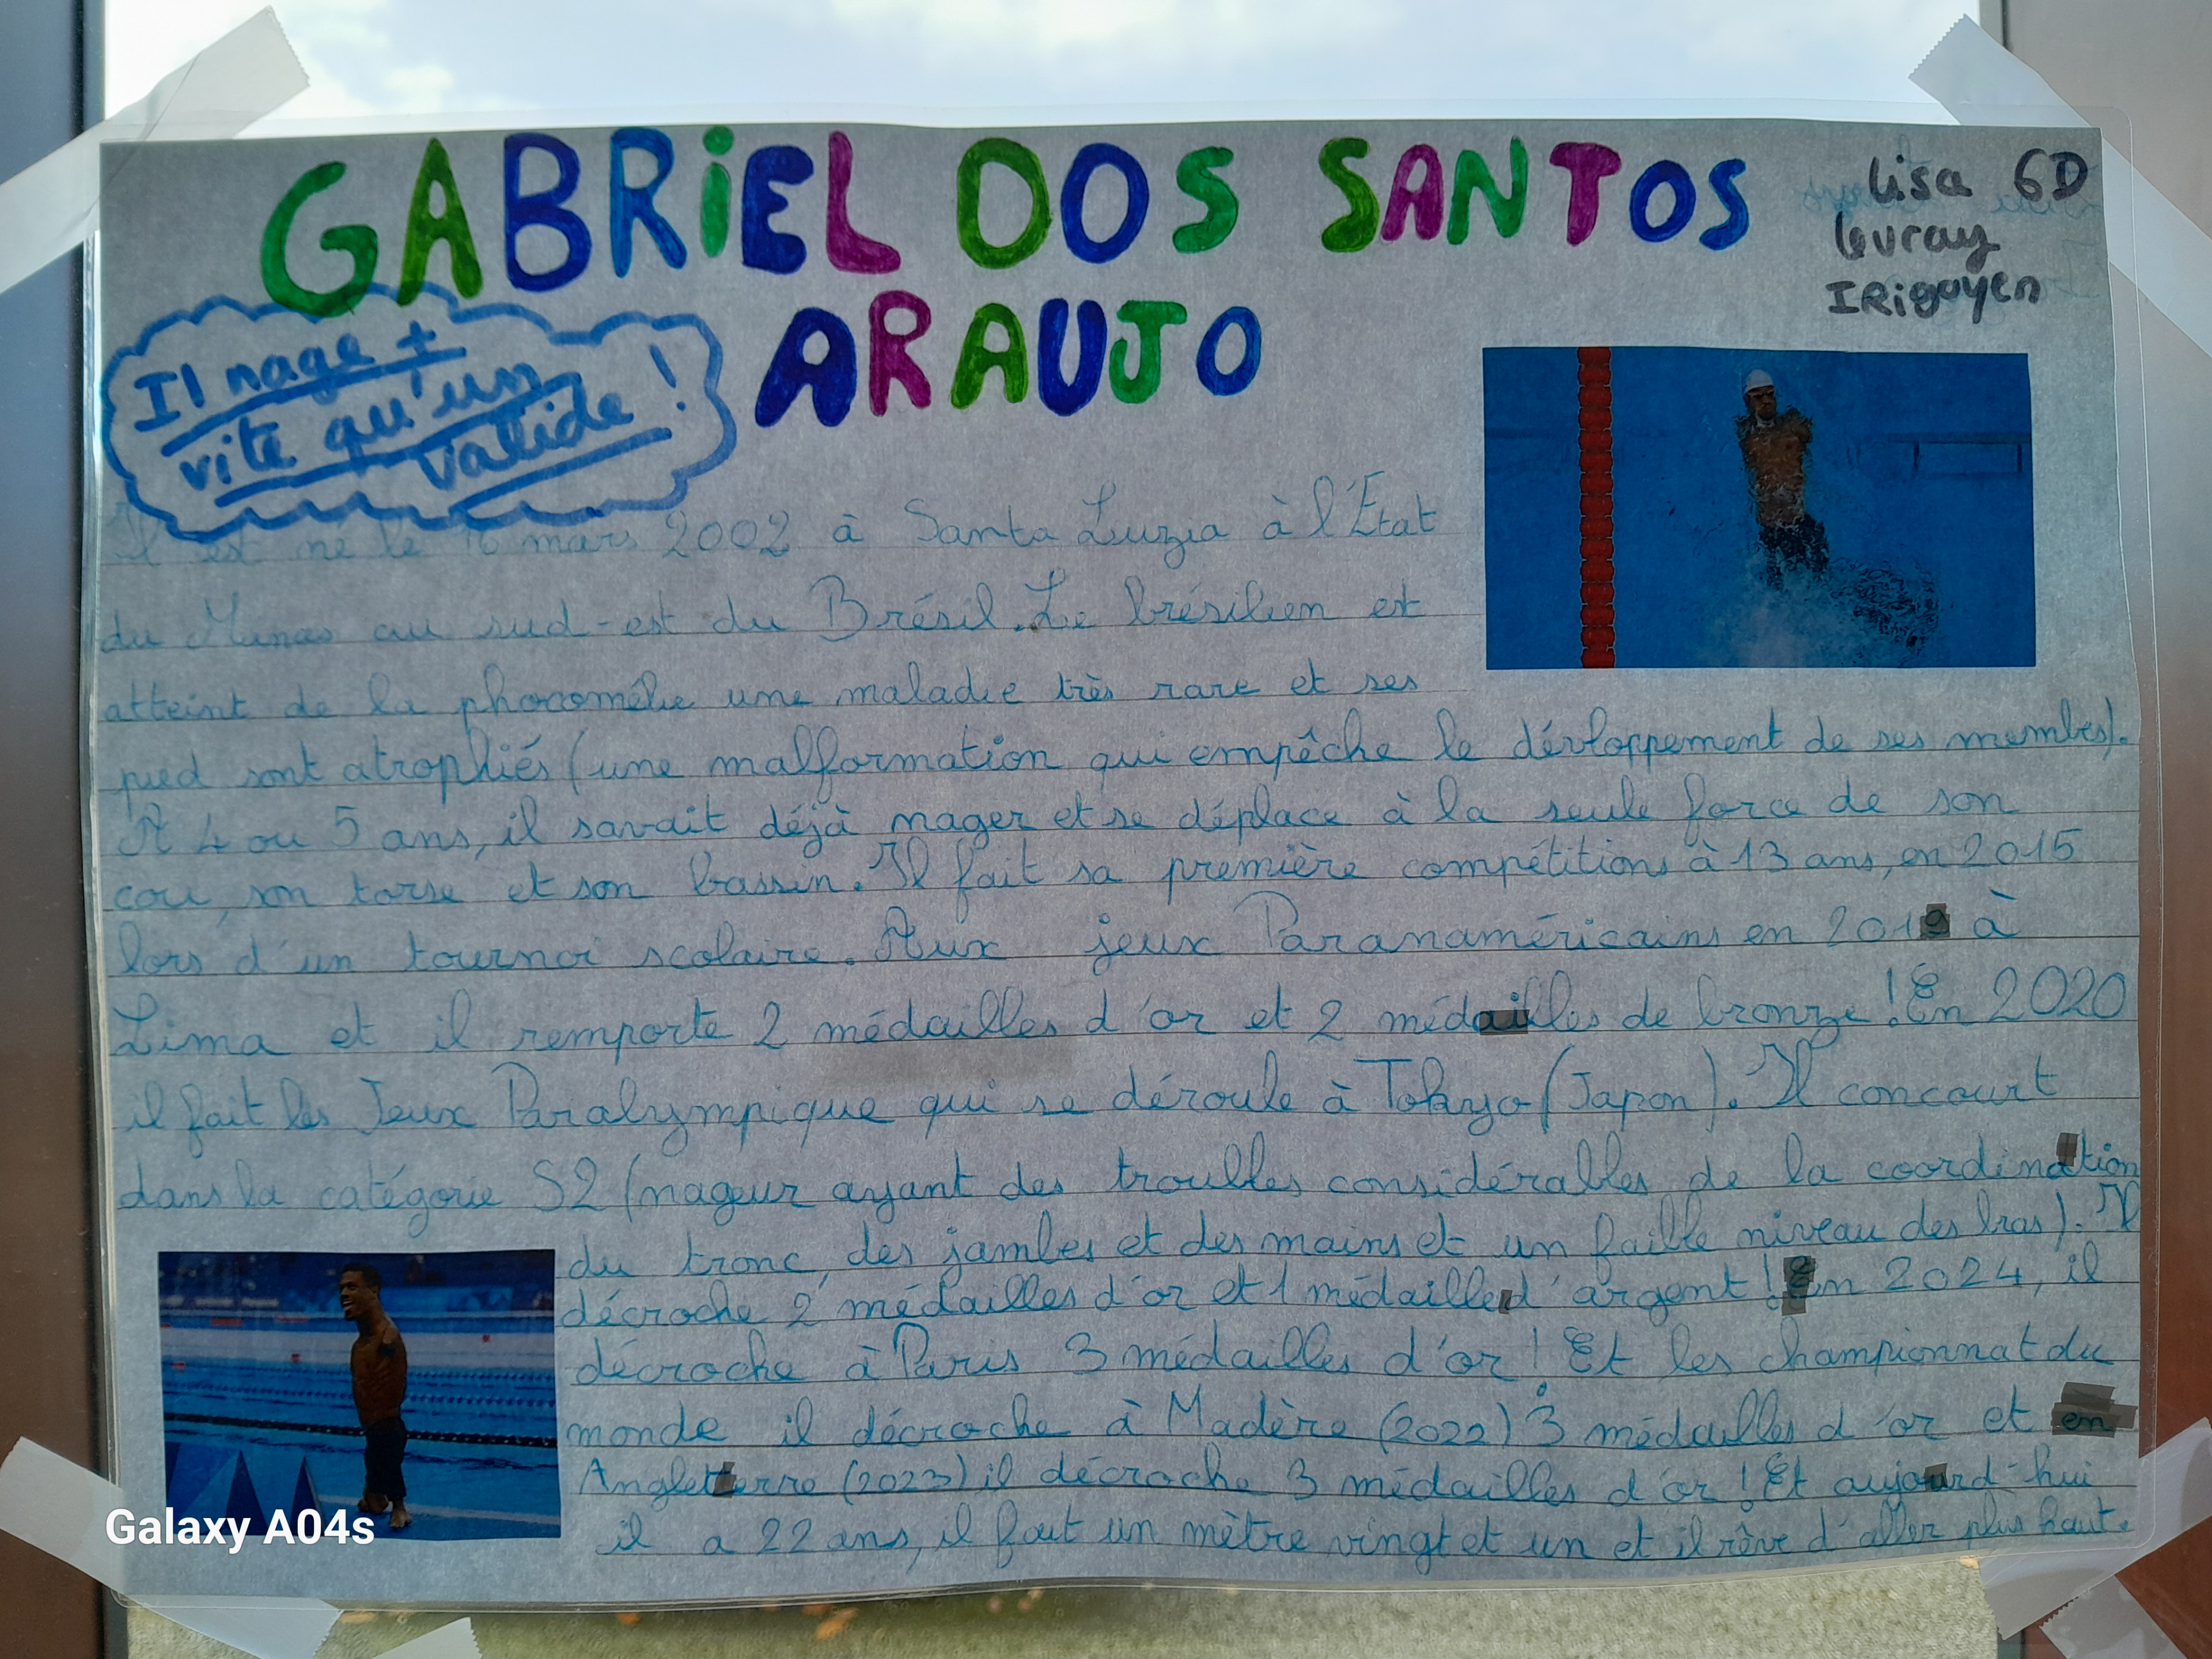 GABRIEL DOS SANTOS
ARAUJO
Lisa 6D
IRigoyen
Il nage +
vite qu'un
valide !
Il est né le 16 mars 2002 à Santa Luzia à l'État
du Munas au sud-est du Brésil. Le brésilien est
atteint de la phocomélie une maladie très rare et ses
pied sont atrophiés (une malformation qui empêche le dévloppement de ses membes).
A 4 ou 5 ans, il savait déjà nager et se déplace à la seule force de son
cou, son torse et son bassin. Il fait sa première compétitions à 13 ans, en 2015
lors d'un tournoi scolaire. Aux jeux Paranaméricains en 2019 à
Lima et il remporte 2 médailles d'or et 2 médailles de bronze ! En 2020
il fait les Jeux Paralympique qui se déroule à Tokyo (Japon). Il concourt
dans la catégorie S2 (nageur ayant des troubles considérables de la coordination
du tronc, des jambes et des mains et un faible niveau des bras). Il
décroche 2 médailles d'or et 1 médaille d'argent ! En 2024, il
décroche à Paris 3 médailles d'or ! Et les championnat du
monde il décroche à Madère (2022) 3 médailles d'or et en
Angleterre (2023) il décroche 3 médailles d'or ! Et aujourd-hui
il a 22 ans, il fait un mètre vingt et un et il rêve d'aller plus haut.
Galaxy A04s